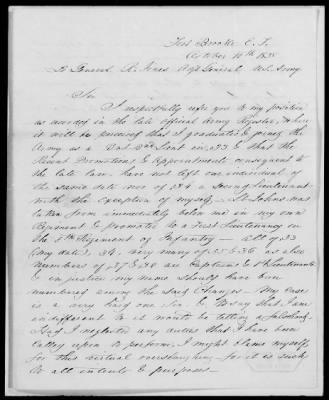 Fort Brooke E. F.
October 10th 1838
To General R. Jones Adjt General U.S. Army
Sir
I respectfully refer you to my position
as accorded in the late official Army Register, where
it will be perceived that I graduated & joined the
Army as a Bvt 2nd Lieut in 33 & that the
Recent Promotions & Appointments consequent to
the late law, have not left one individual of
the same date nor of 34 a Second Lieutenant
with the exception of myself. St Johns was
taken from immediately below me in my own
Regiment & promoted to a First Lieutenancy in
the 8th Regiment of Infantry — All of 33
(My date), 34, very many of 35 & 36 as also
members of 37 & 38 are Captains & 1st Lieutenants
& en justice my name should have been
numbered among the said changes — My case
is a very hard one Sir & to say that I am
indifferent to it would be telling a falsehood.
Had I neglected any duties that I have been
called upon to perform, I might blame myself
for this virtual overslaughing — for it is such
to all intents & purposes —